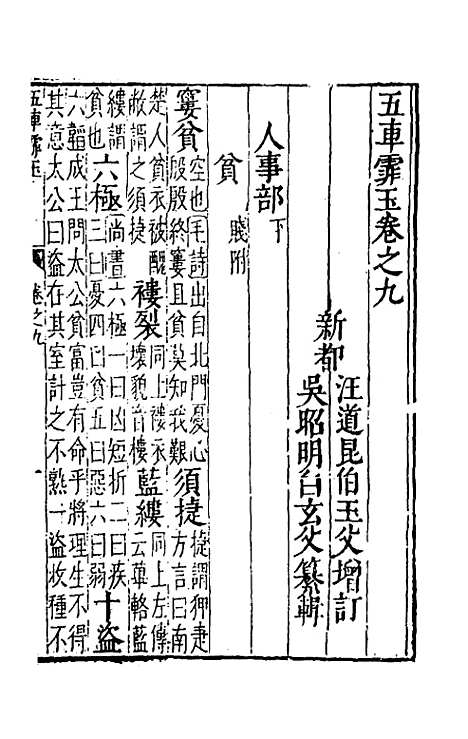 五車霏玉卷之九
新都
汪道昆伯玉父增訂
吳昭明台玄父纂輯
人事部下
貧 賤附
窶貧 空也毛詩出自北門憂心
殷殷終窶且貧莫知我艱
須捷 捷謂狎疌
方言曰南
楚人貧衣被醜
敝謂之須捷
褸裂 同上褸衣
壞貌音樓
藍縷 同上左傳
云蓽輅藍
縷謂
貧也
六極 尚書六極一曰凶短折二曰疾
三曰憂四曰貧五曰惡六曰弱
十盜
六韜成王問太公貧富豈有命乎將理生不得
其意太公曰盜在其室計之不熟一盜收種不
五車霏玉 卷之九 一